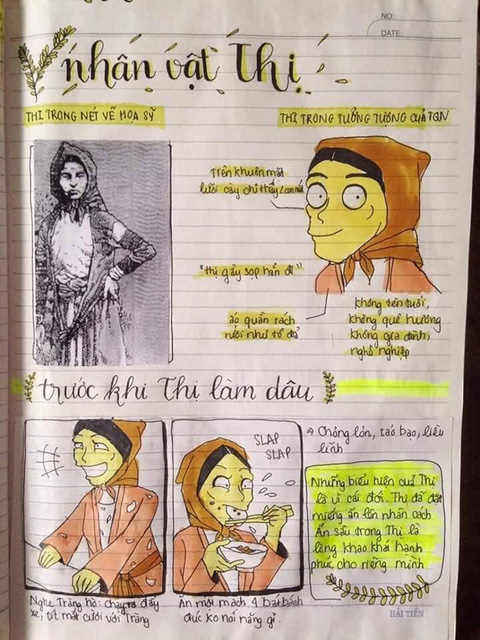 NO:
DATE:
nhân vật Thị
THỊ TRONG NÉT VẼ HOẠ SỸ
THỊ TRONG TƯỞNG TƯỢNG CUẢ TQN
Trên khuôn mặt
lưỡi cày chỉ thấy 2 con mắt
"thị gầy sọp hẳn đi"
áo quần rách
rưới như tổ đỉa
không tên tuổi,
không quê hương
không gia đình,
nghề nghiệp
trước khi Thị làm dâu
SLAP
SLAP
→ Chỏng lỏn, táo bạo, liều
lĩnh
Những biểu hiện cuả Thị
là vì cái đói. Thị đã đặt
miếng ăn lên nhân cách
Ẩn sâu trong Thị là
lòng khao khát hành
phúc cho riêng mình
Nghe Tràng hò: chạy ra đẩy
xe, tít mắt cười với Tràng
Ăn một mạch 4 bát bánh
đúc ko nói năng gì.
HẢI TIẾN